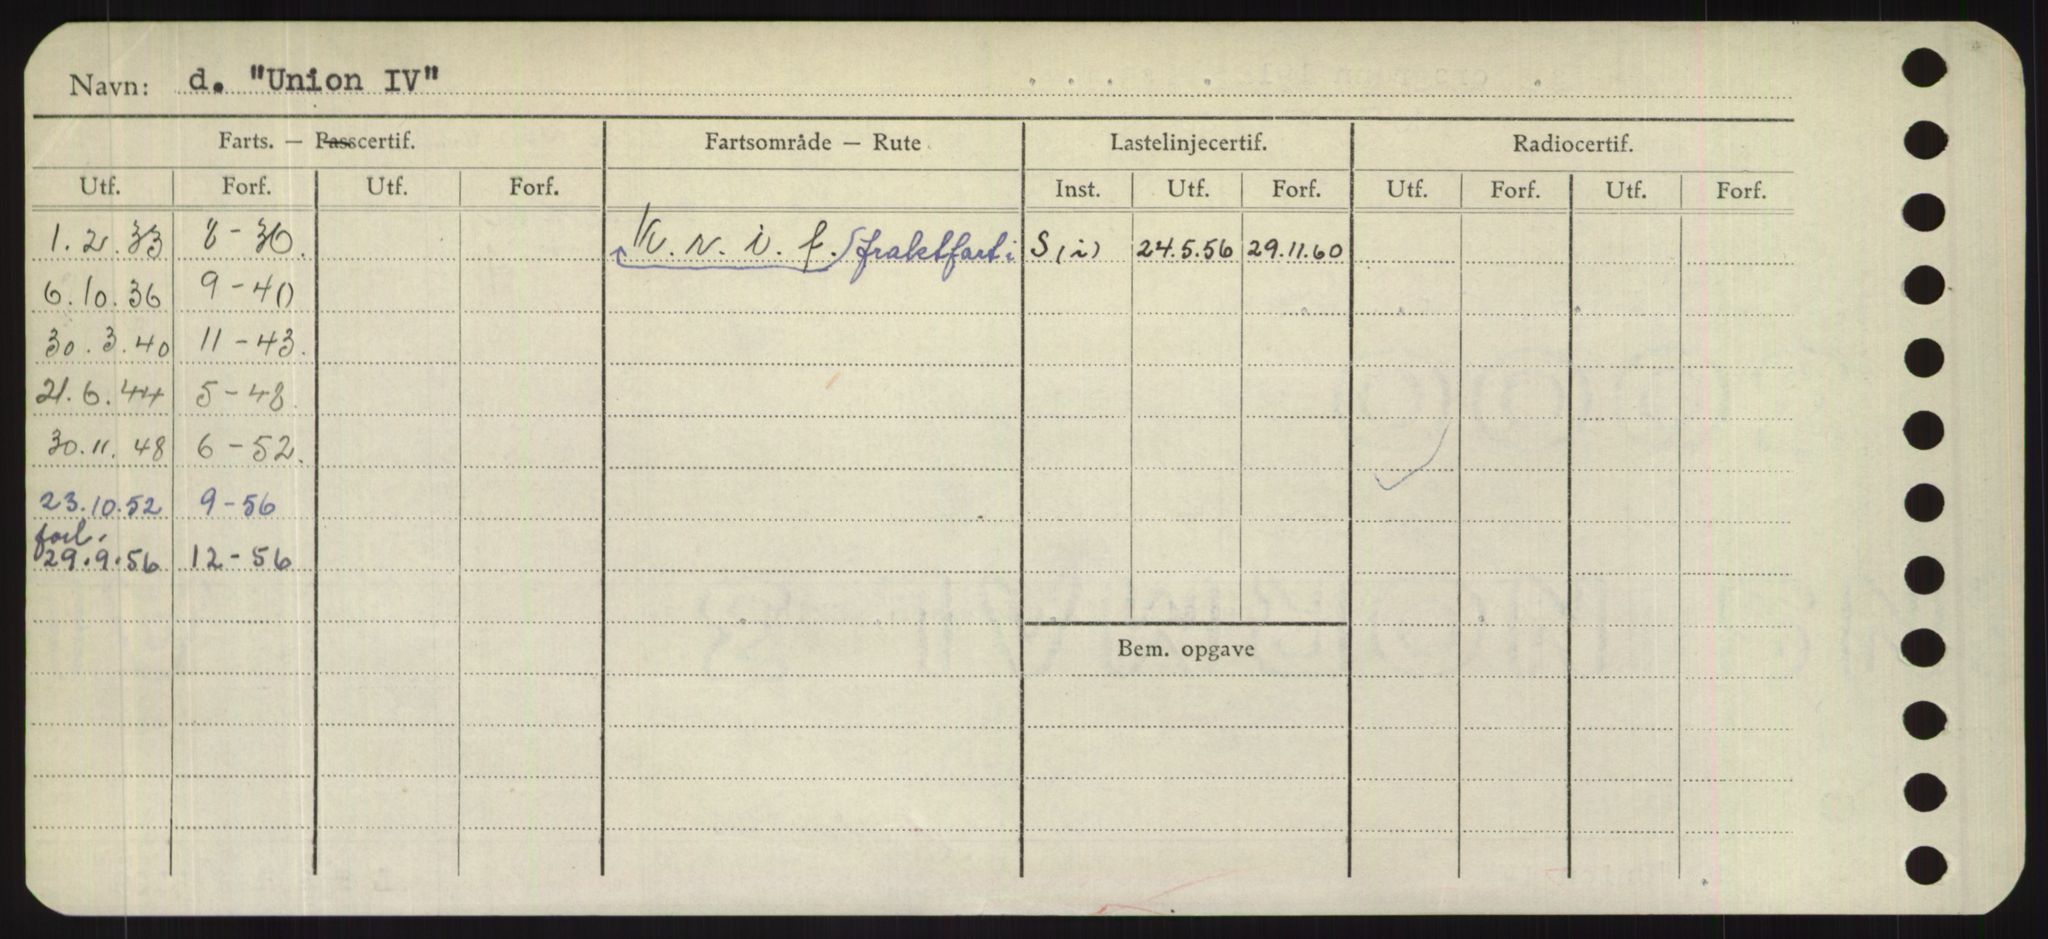 Navn: d. "Union IV"
Farts. — Passcertif. Fartsområde — Rute Lastelinjecertif. Radiocertif.
Utf. Forf. Utf. Forf. Inst. Utf. Forf. Utf. Forf. Utf. Forf.
1.2.33 8-36. K. n. i. f. (fraktfart i S(i) 24.5.56 29.11.60
6.10.36 9-40
30.3.40 11-43.
21.6.44 5-48.
30.11.48 6-52.
23.10.52 9-56
forl.
29.9.56 12-56
Bem. opgave